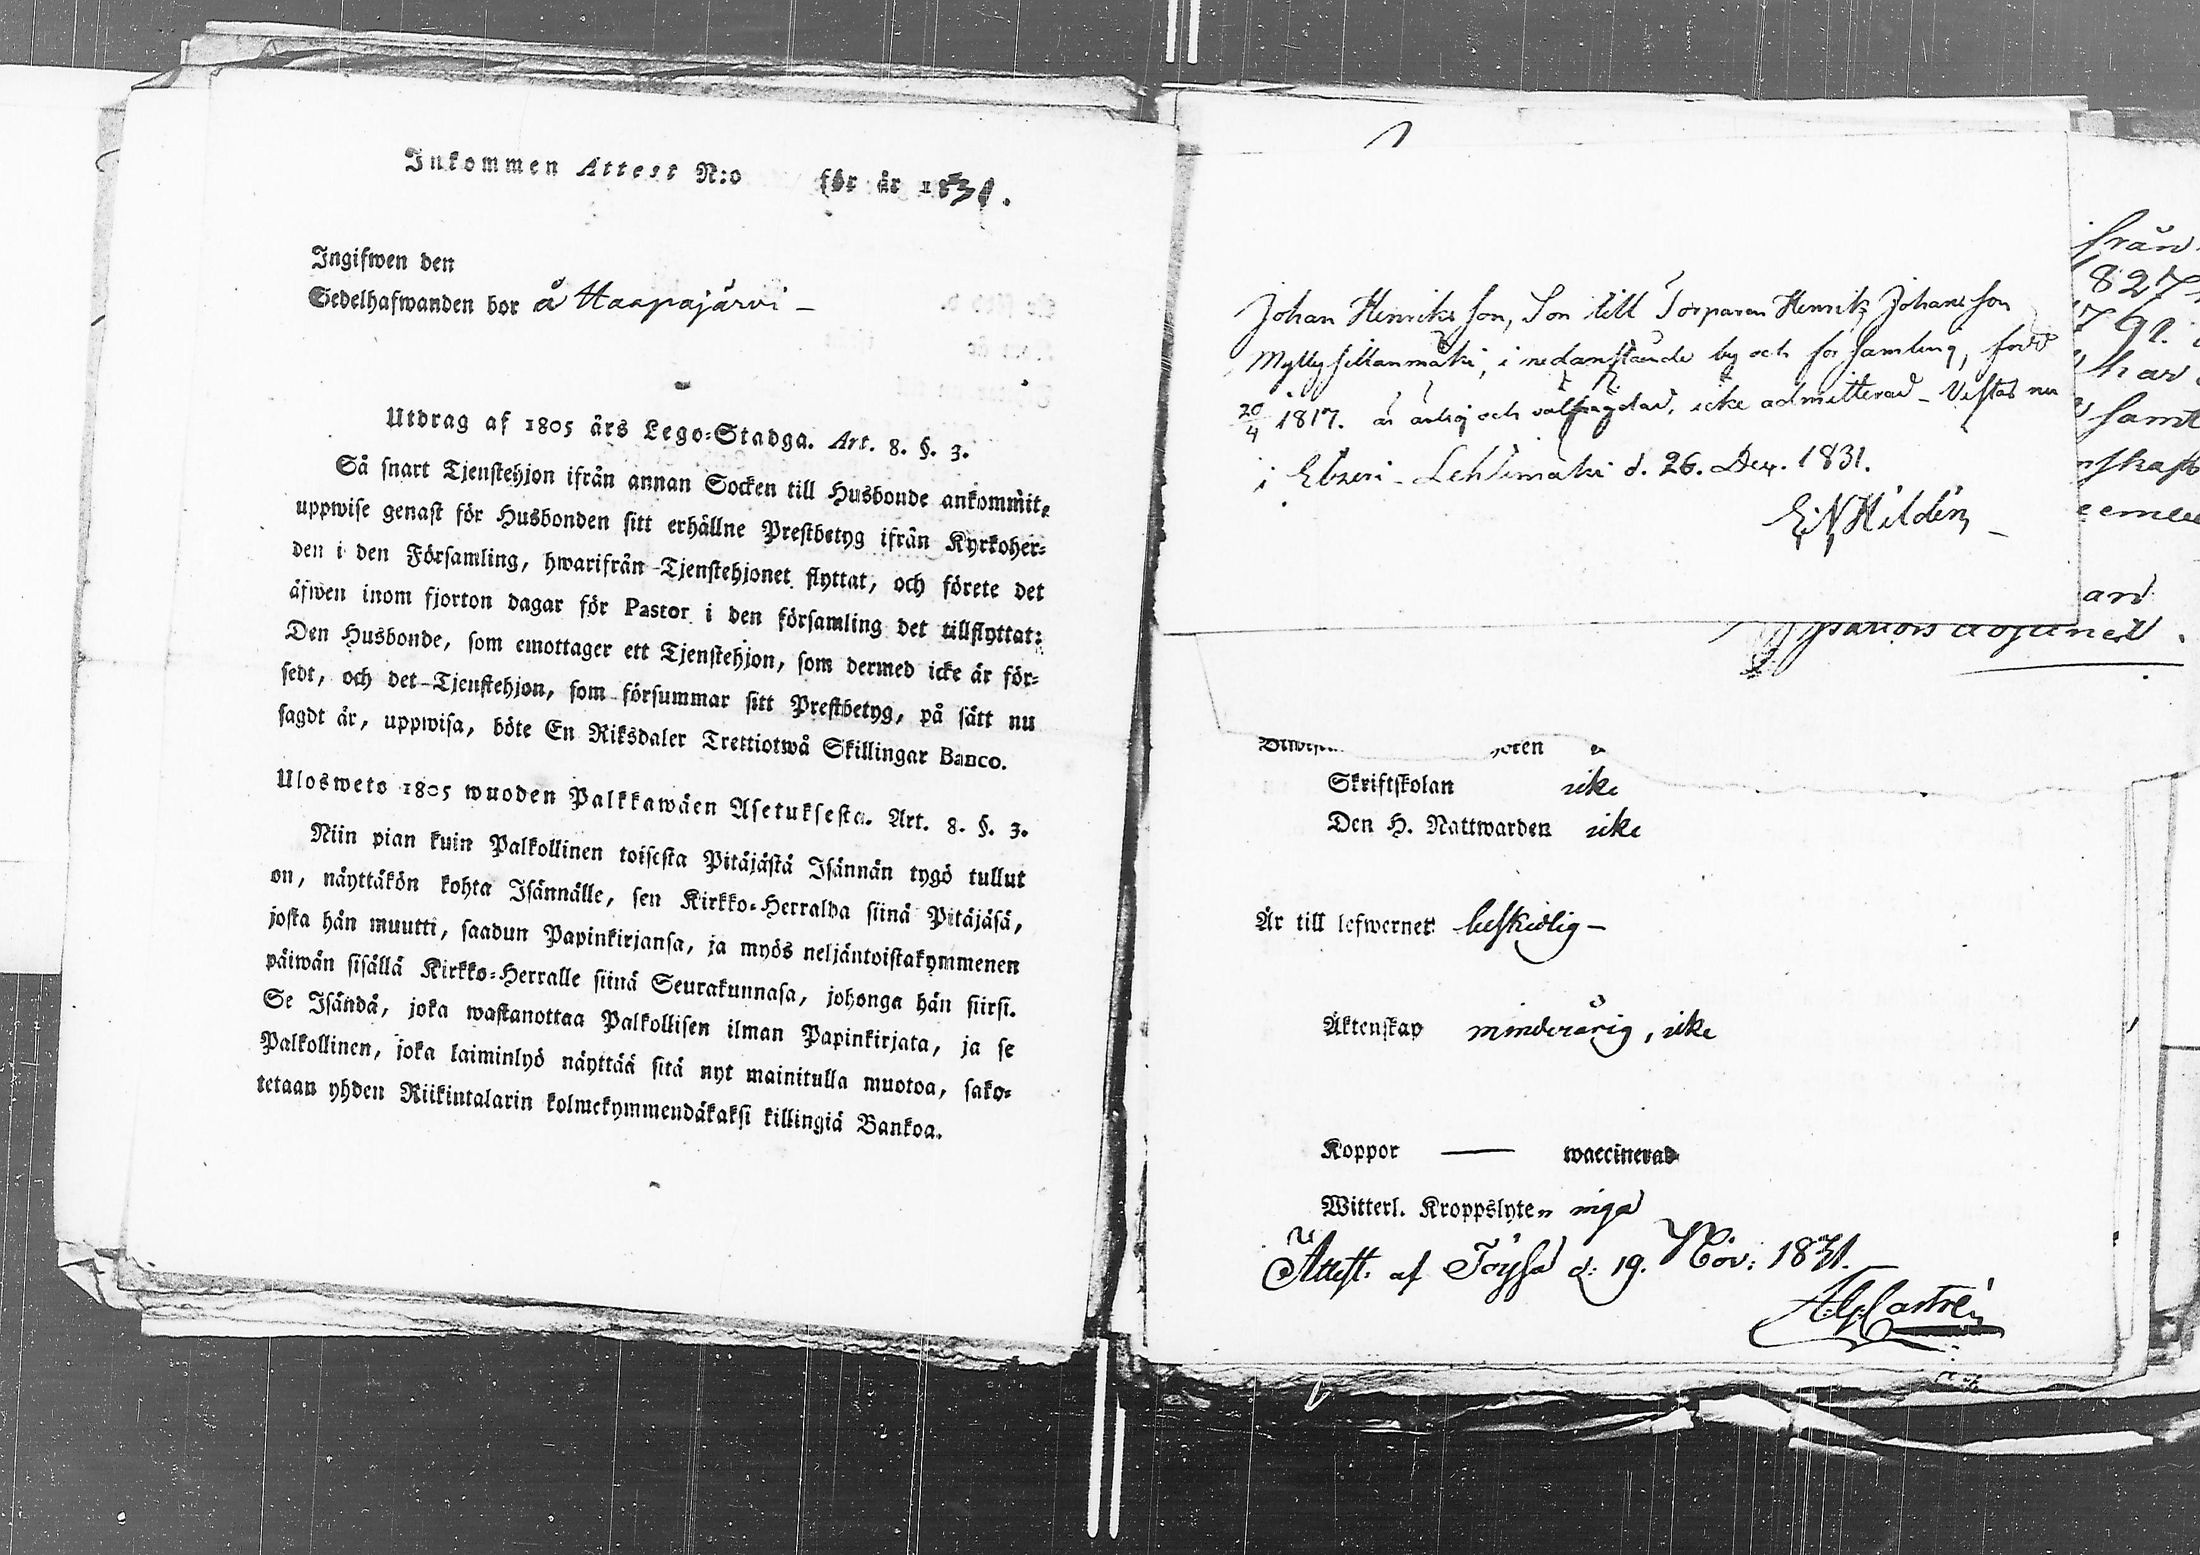 Inkommen Attest N:o för år 1831.
Ingifwen den
Sedelhafwanden bor å Haapajärvi –
Utdrag af 1805 års Lego-Stadga. Art. 8. §. 3.
Så snart Tjenstehjon ifrån annan Socken till Husbonde ankommit,
uppwise genast för Husbonden sitt erhållne Prestbetyg ifrån Kyrkoher-
den i den Församling, hwarifrån Tjenstehjonet flyttat, och förete det
äfwen inom fjorton dagar för Pastor i den församling det tillflyttat:
Den Husbonde, som emottager ett Tjenstehjon, som dermed icke är för-
sedt, och det Tjenstehjon, som försummar sitt Prestbetyg, på sätt nu
sagdt är, uppwisa, böte En Riksdaler Trettiotwå Skillingar Banco.
Ulosweto 1805 wuoden Palkkawäen Asetuksesta. Art. 8. §. 3.
Niin pian kuin Palkollinen toisesta Pitäjästä Isännän tygö tullut
on, näyttäkön kohta Isännälle, sen Kirkko-Herralda siinä Pitäjäsä,
josta hän muutti, saadun Papinkirjansa, ja myös neljäntoistakymmenen
päiwän sisällä Kirkko-Herralle siinä Seurakunnasa, johonga hän siirsi.
Se Isändä, joka wastanottaa Palkollisen ilman Papinkirjata, ja se
Palkollinen, joka laiminlyö näyttää sitä nyt mainitulla muotoa, sako-
tetaan yhden Riikintalarin kolmekymmendäkaksi killingiä Bankoa.
Johan Henriksson, Son till Torparen Henrik Johansson
Myllysillanmäki, i nedanstående by och församling, född
20/4 1817. är ärlig och välfrägdad, icke admitterad – Vistas nu
i Etseri – Lehtimäki d. 26. Dec. 1831.
E. N. Hildén
från
1827
791.
har
samt
Skriftskolan icke
Den H. Nattwarden icke
Är till lefwernet beskedlig –
Äktenskap minderårig, icke
Koppor — waccinerad
Witterl. Kroppslyten inga
Attest. af Töysä d: 19. Nov: 1831.
Castrén